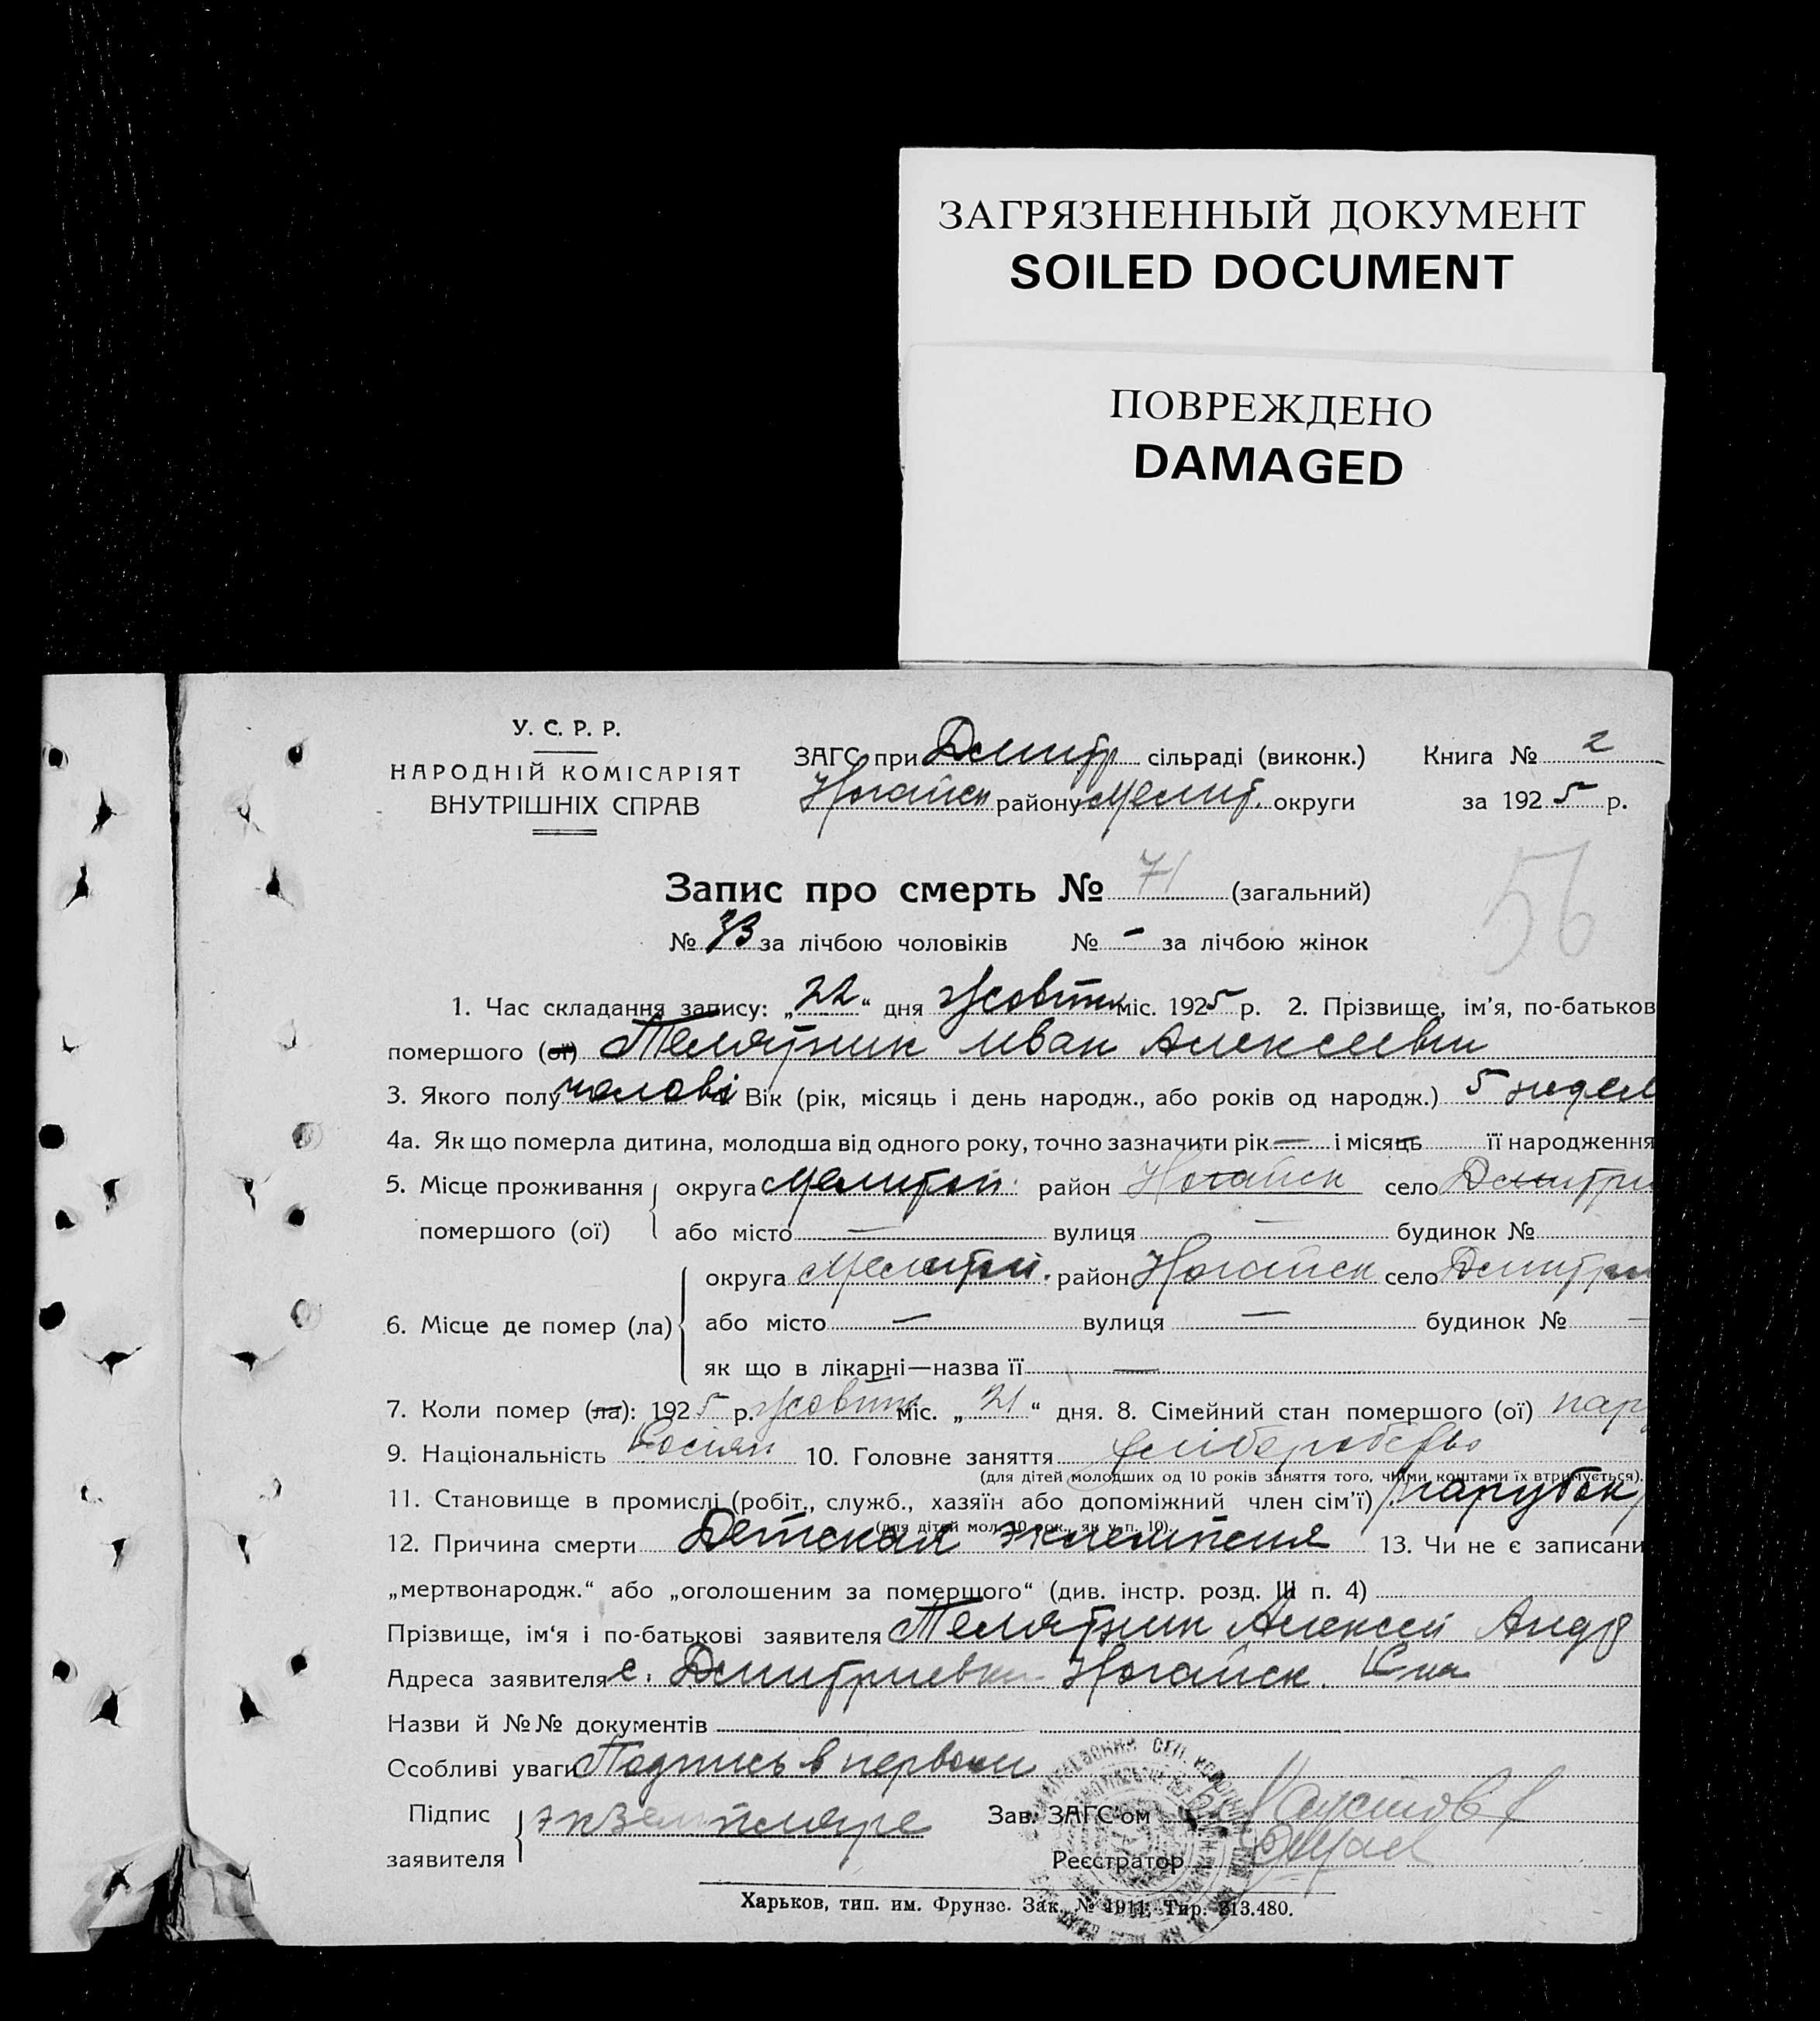 ЗАГРЯЗНЕННЫЙ ДОКУМЕНТ
SOILED DOCUMENT
ПОВРЕЖДЕНО
DAMAGED
У. С. Р. Р.
НАРОДНІЙ КОМІСАРІЯТ
ВНУТРІШНІХ СПРАВ
ЗАГС при Дмитр сільраді (виконк.) Книга № 2
Ногайск району Мелит. округи за 1925 р.
56
Запис про смерть № 71 (загальний)
№ за лічбою чоловіків № - за лічбою жінок
1. Час складання запису: „22“ дня Жовтн міс. 1925 р. 2. Прізвище, ім'я, по-батьков
помершого (ої) Телятник Иван Алексеевич
3. Якого полу чолові 4. Вік (рік, місяць і день народж., або років од народж.) 5 недел
4а. Як що померла дитина, молодша від одного року, точно зазначити рік — і місяць її народження
5. Місце проживання округа Мелитоп. район Ногайск село Дмитри
помершого (ої) або місто — вулиця — будинок №
округа Мелитоп. район Ногайск село Дмитри
6. Місце де помер (ла) або місто — вулиця — будинок № —
як що в лікарні—назва її —
7. Коли помер (ла): 1925 р. Жовтн міс. „21“ дня. 8. Сімейний стан помершого (ої) пар
9. Національність 10. Головне заняття хліборобство
(для дітей молодших од 10 років заняття того, чиїми коштами їх втримується).
11. Становище в промислі (робіт., служб., хазяїн або допоміжний член сім'ї) парубок
(для дітей мол. 10 рок., як у п. 10).
12. Причина смерти Детская эклемпсия 13. Чи не є записани
„мертвонародж.“ або „оголошеним за померщого“ (див. інстр. розд. III п. 4)
Прізвище, ім'я і по-батькові заявителя Телятник Алексей Андр
Адреса заявителя с. Дмитриевка Ногайск.
Назви й №№ документів
Особливі уваги Подпись в первом
Підпис экземпляре Зав. ЗАГС'ом
заявителя Реєстратор
Харьков, тип. им. Фрунзе. Зак. № 1911. Тир. 213.480.